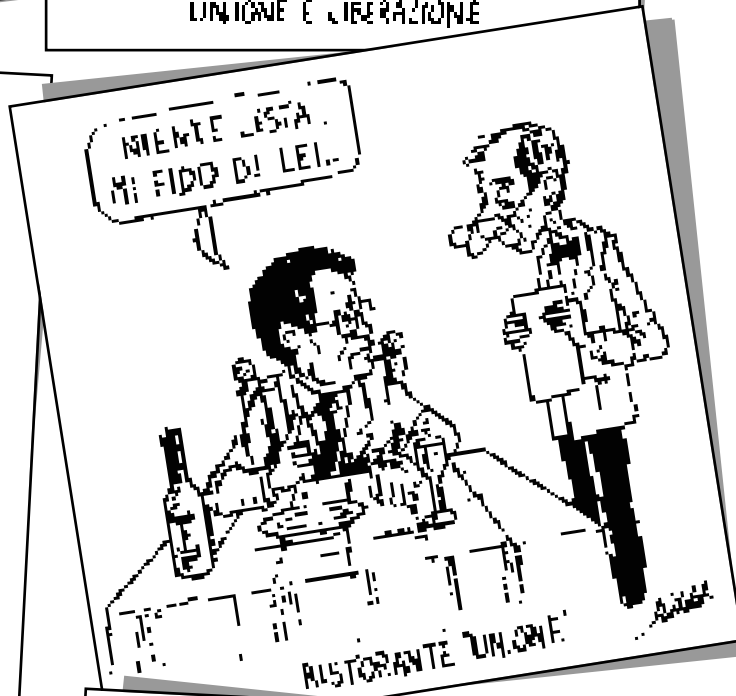 UNIONE E LIBERAZIONE
NIENTE LISTA.
MI FIDO DI LEI...
RISTORANTE "UNIONE"